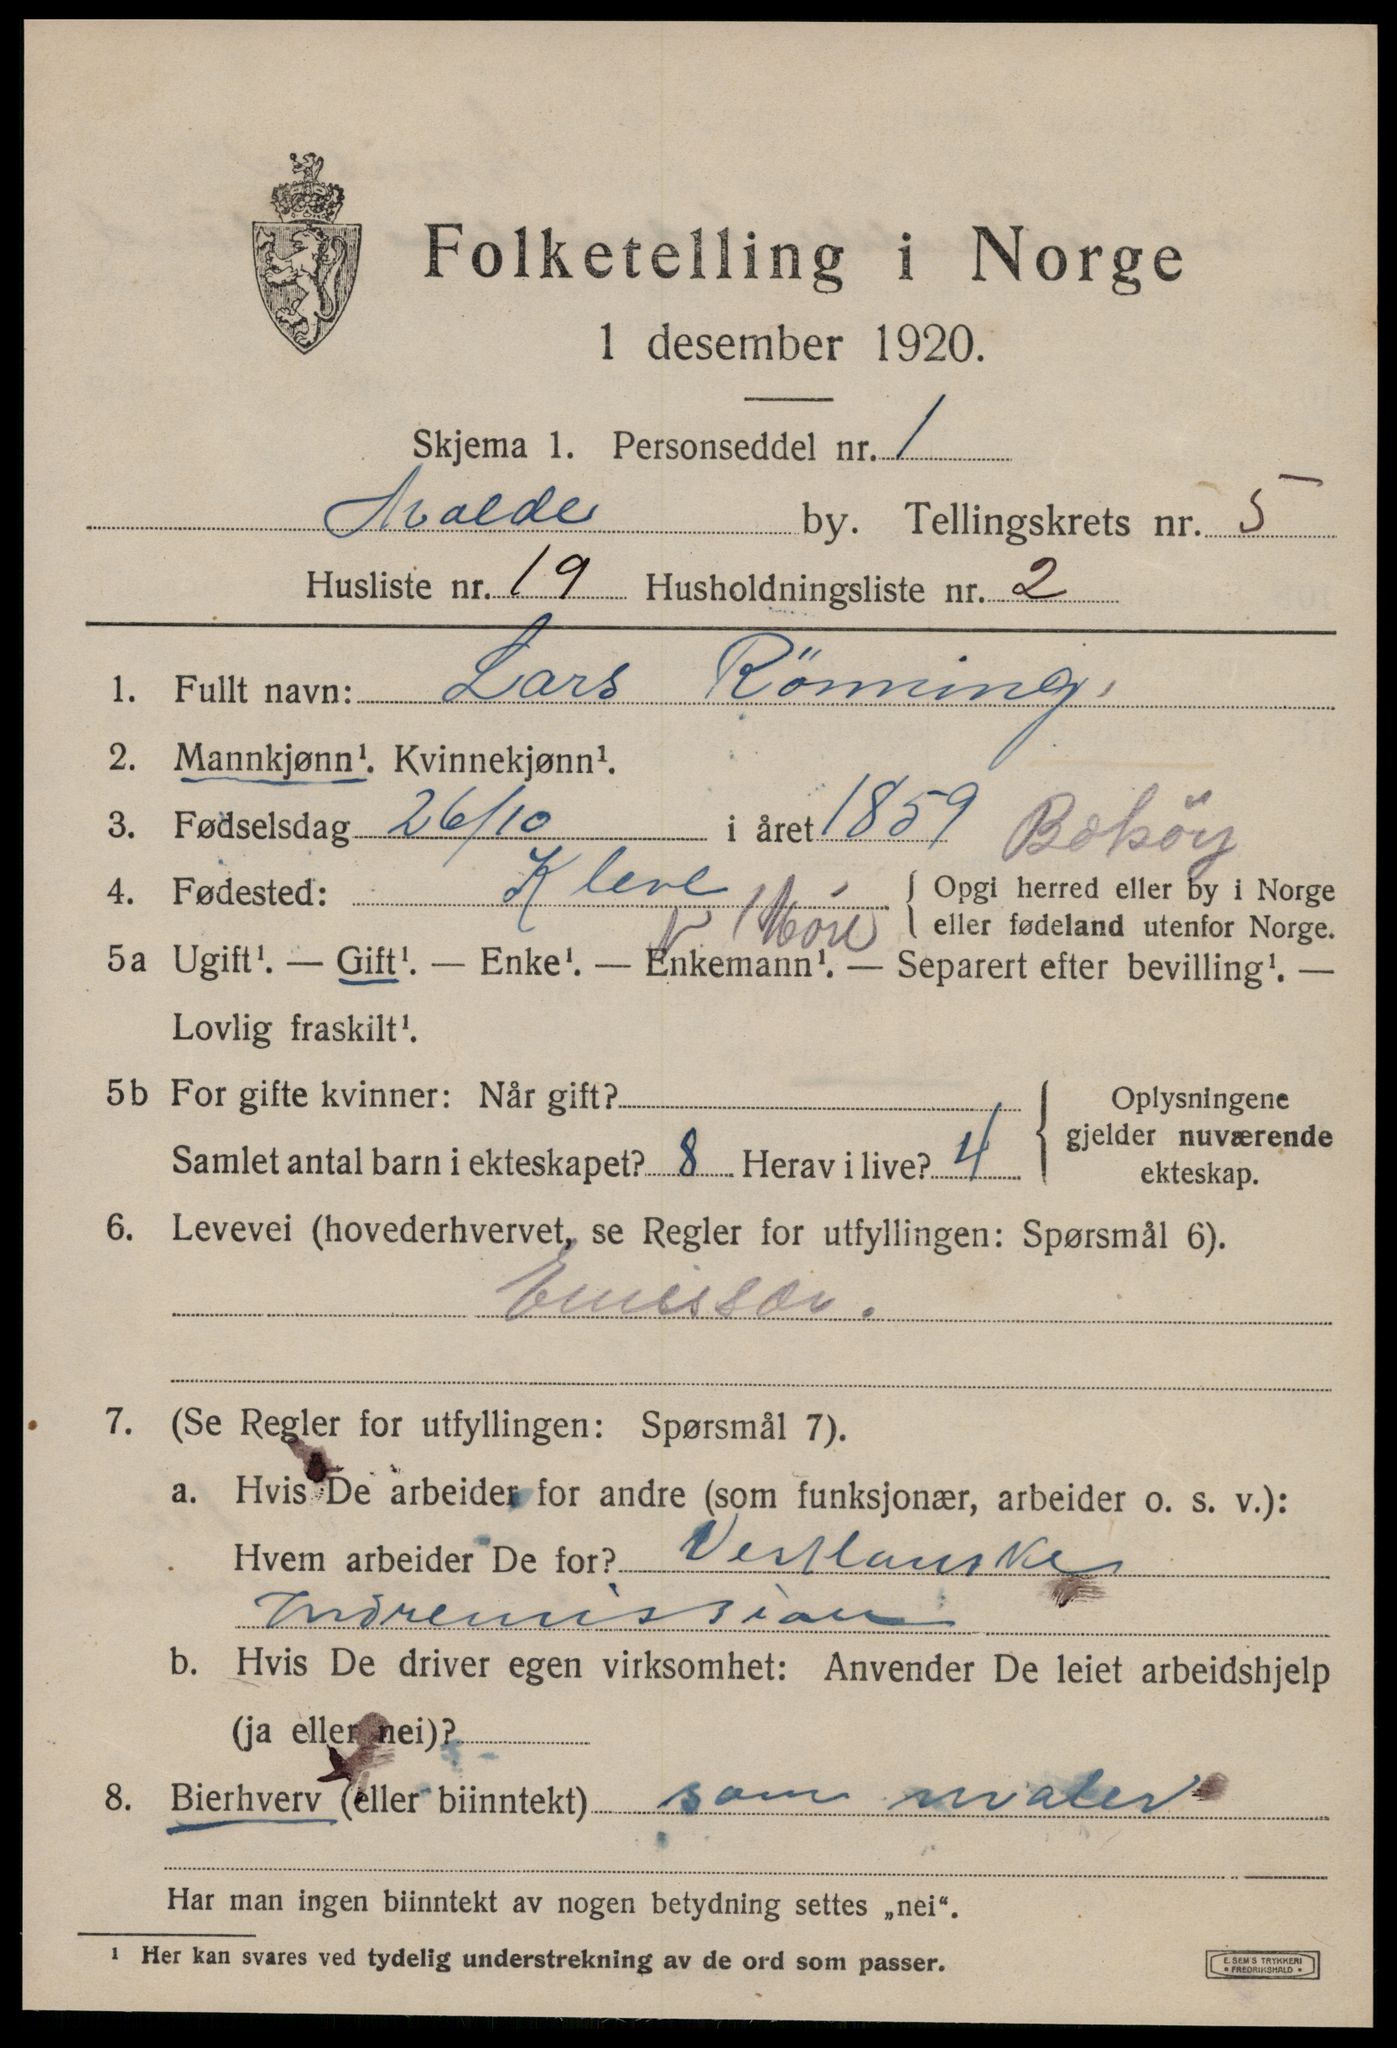 Folketelling i Norge
1 desember 1920.
Skjema 1. Personseddel nr. 1
Molde by. Tellingskrets nr. 5
Husliste nr. 19 Husholdningsliste nr. 2
1. Fullt navn: Lars Rönning.
2. Mannkjønn¹. Kvinnekjønn¹.
3. Fødselsdag 26/10 i året 1859
Bolsöy
4. Fødested: Kleve { Opgi herred eller by i Norge
eller fødeland utenfor Norge.
v Möre
5a Ugift¹. — Gift¹. — Enke¹. — Enkemann¹. — Separert efter bevilling¹. —
Lovlig fraskilt¹.
5b For gifte kvinner: Når gift? { Oplysningene
gjelder nuværende
ekteskap.
Samlet antal barn i ekteskapet? 8 Herav i live? 4
6. Levevei (hovederhvervet, se Regler for utfyllingen: Spørsmål 6).
Emissær.
7. (Se Regler for utfyllingen: Spørsmål 7).
a. Hvis De arbeider for andre (som funksjonær, arbeider o. s. v.):
Hvem arbeider De for? Vestlanske
Indremission
b. Hvis De driver egen virksomhet: Anvender De leiet arbeidshjelp
(ja eller nei)?
8. Bierhverv (eller biinntekt) som maler
Har man ingen biinntekt av nogen betydning settes „nei“.
¹ Her kan svares ved tydelig understrekning av de ord som passer.
E. SEM'S TRYKKERI
• FREDRIKSHALD •